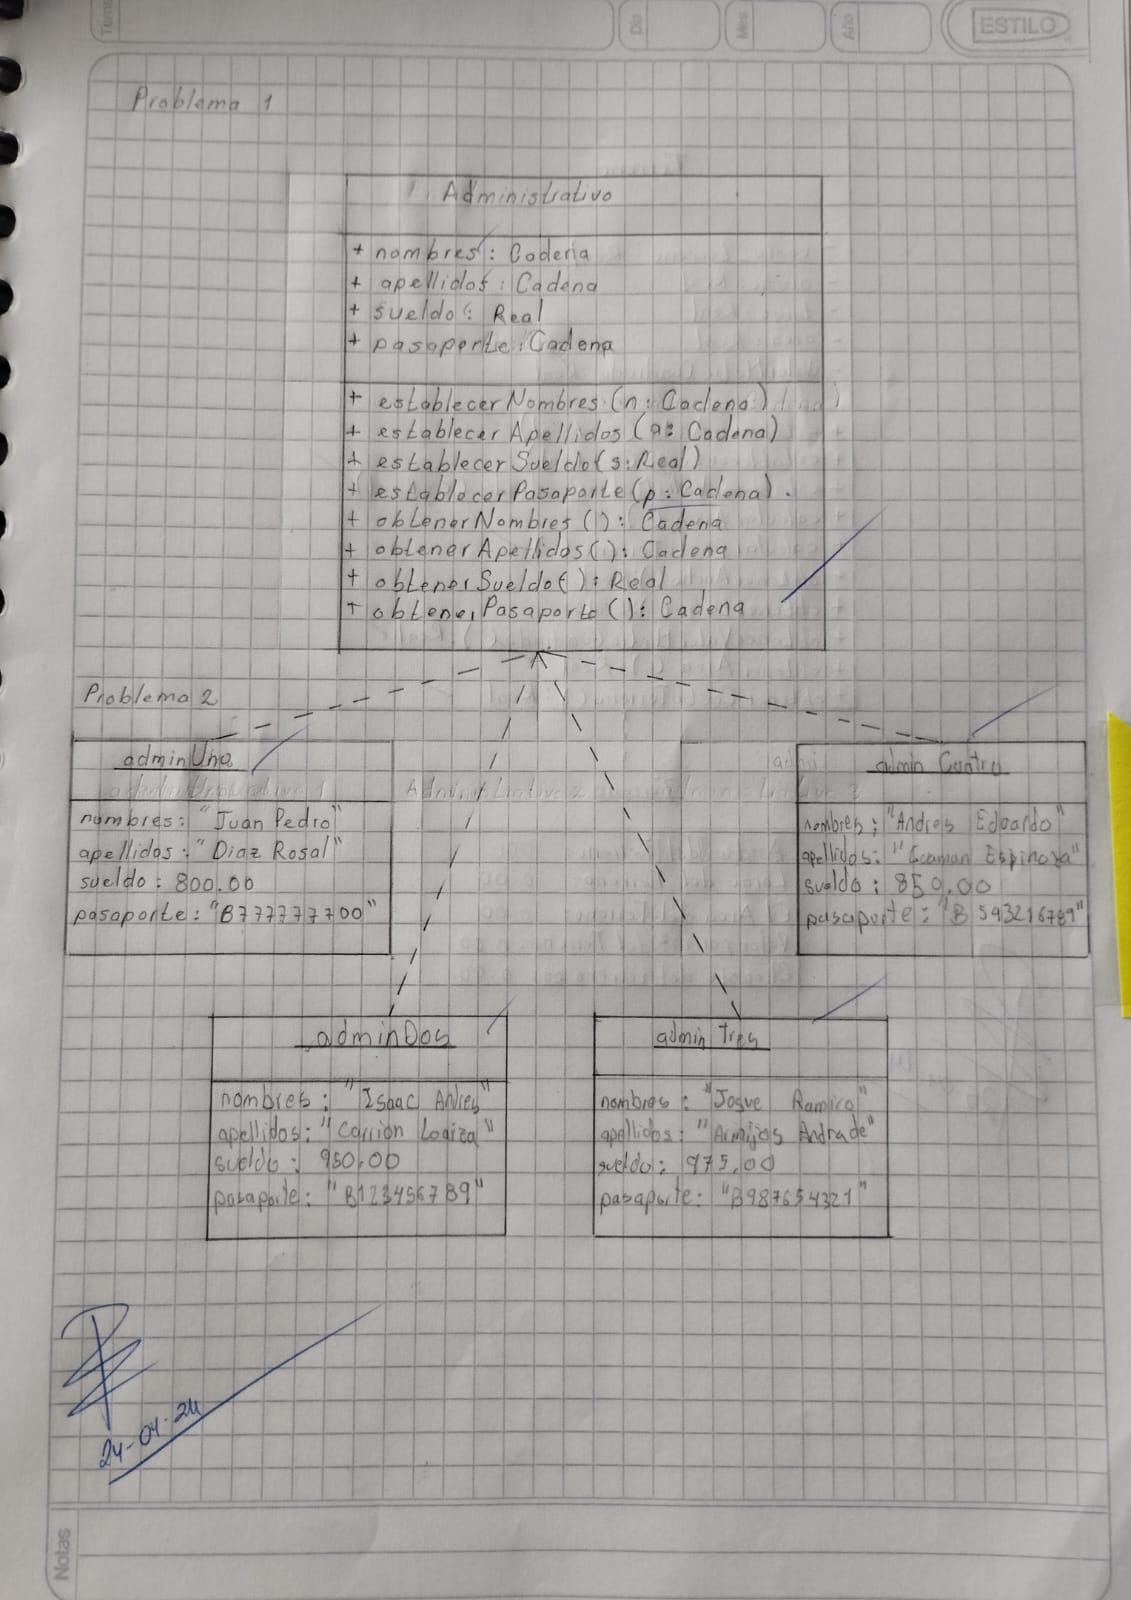 ESTILO
Día
Mes
Año
Problema 1
Administrativo
+ nombres: Cadena
+ apellidos: Cadena
+ sueldo: Real
+ pasaporte: Cadena
+ establecerNombres (n: Cadena)
+ establecerApellidos (a: Cadena)
+ establecerSueldo (s: Real)
+ establecerPasaporte (p: Cadena).
+ obtenerNombres (): Cadena
+ obtenerApellidos (): Cadena
+ obtenerSueldo (): Real
+ obtenerPasaporte (): Cadena
Problema 2
adminUno
nombres: "Juan Pedro"
apellidos: "Diaz Rosal"
sueldo: 800.00
pasaporte: "B777777700"
admin Cuatro
nombres: "Andres Eduardo"
apellidos: "Espinoza"
sueldo: 850.00
pasaporte: "B593216789"
adminDos
nombres: "Isaac Andres"
apellidos: "Carrión Loaiza"
sueldo: 950.00
pasaporte: "B123456789"
admin Tres
nombres: "Josue Ramiro"
apellidos: "Armijos Andrade"
sueldo: 975.00
pasaporte: "B987654321"
24-04-24
Notas